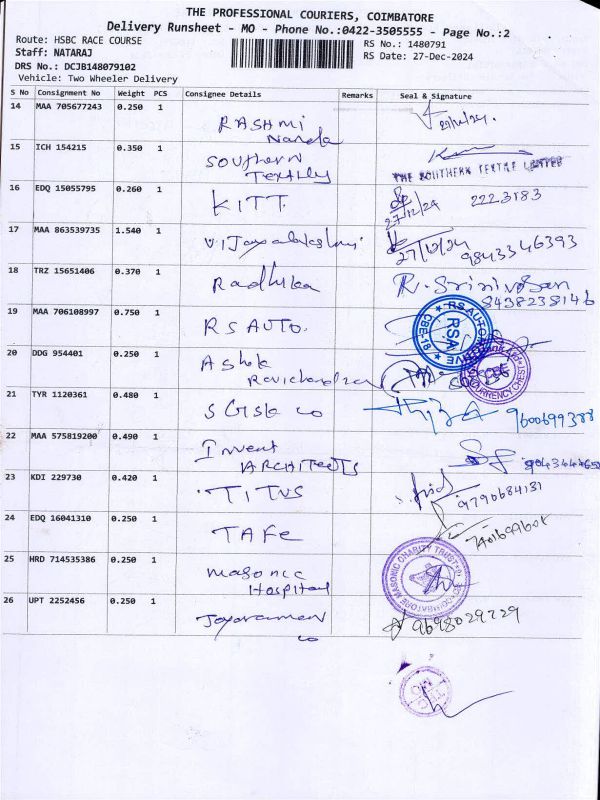 THE PROFESSIONAL COURIERS, COIMBATORE
Delivery Runsheet - MO - Phone No.:0422-3505555 - Page No.:2
Route: HSBC RACE COURSE
RS No.: 1480791
Staff: NATARAJ
RS Date: 27-Dec-2024
DRS No.: DCJB148079102
Vehicle: Two Wheeler Delivery
S No Consignment No Weight PCS Consignee Details Remarks Seal & Signature
14 MAA 705677243 0.250 1
RASHMI
Nanda
15 ICH 154215 0.350 1
Southern
Textily
THE SOUTHERN TEXTILE LIMITED
16 EDQ 15055795 0.260 1
KITT
27/12/24
2223183
17 MAA 863539735 1.540 1
Vijayalakshmi
27/12/24
9843346393
18 TRZ 15651406 0.370 1
Radhika
R. Srinivasan
8438238146
19 MAA 706108997 0.750 1
RS AUTO.
RS AUTO
RSA
CBE-18
20 DDG 954401 0.250 1
Ashok
Ravichandran
CURRENCY CHEST
21 TYR 1120361 0.480 1
S Gisk co
9600699388
22 MAA 575819200 0.490 1
Invent
ARCHITECTS
23 KDI 229730 0.420 1
TITUS
9790684131
24 EDQ 16041310 0.250 1
TAFE
25 HRD 714535386 0.250 1
Masonic
Hospital
COIMBATORE MASONIC CHARITY TRUST
26 UPT 2252456 0.250 1
Jayaraman
co
9698029729